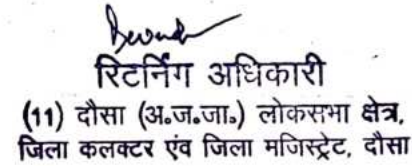 रिटर्निंग अधिकारी
(11) दौसा (अ.ज.जा.) लोकसभा क्षेत्र,
जिला कलक्टर एंव जिला मजिस्ट्रेट, दौसा